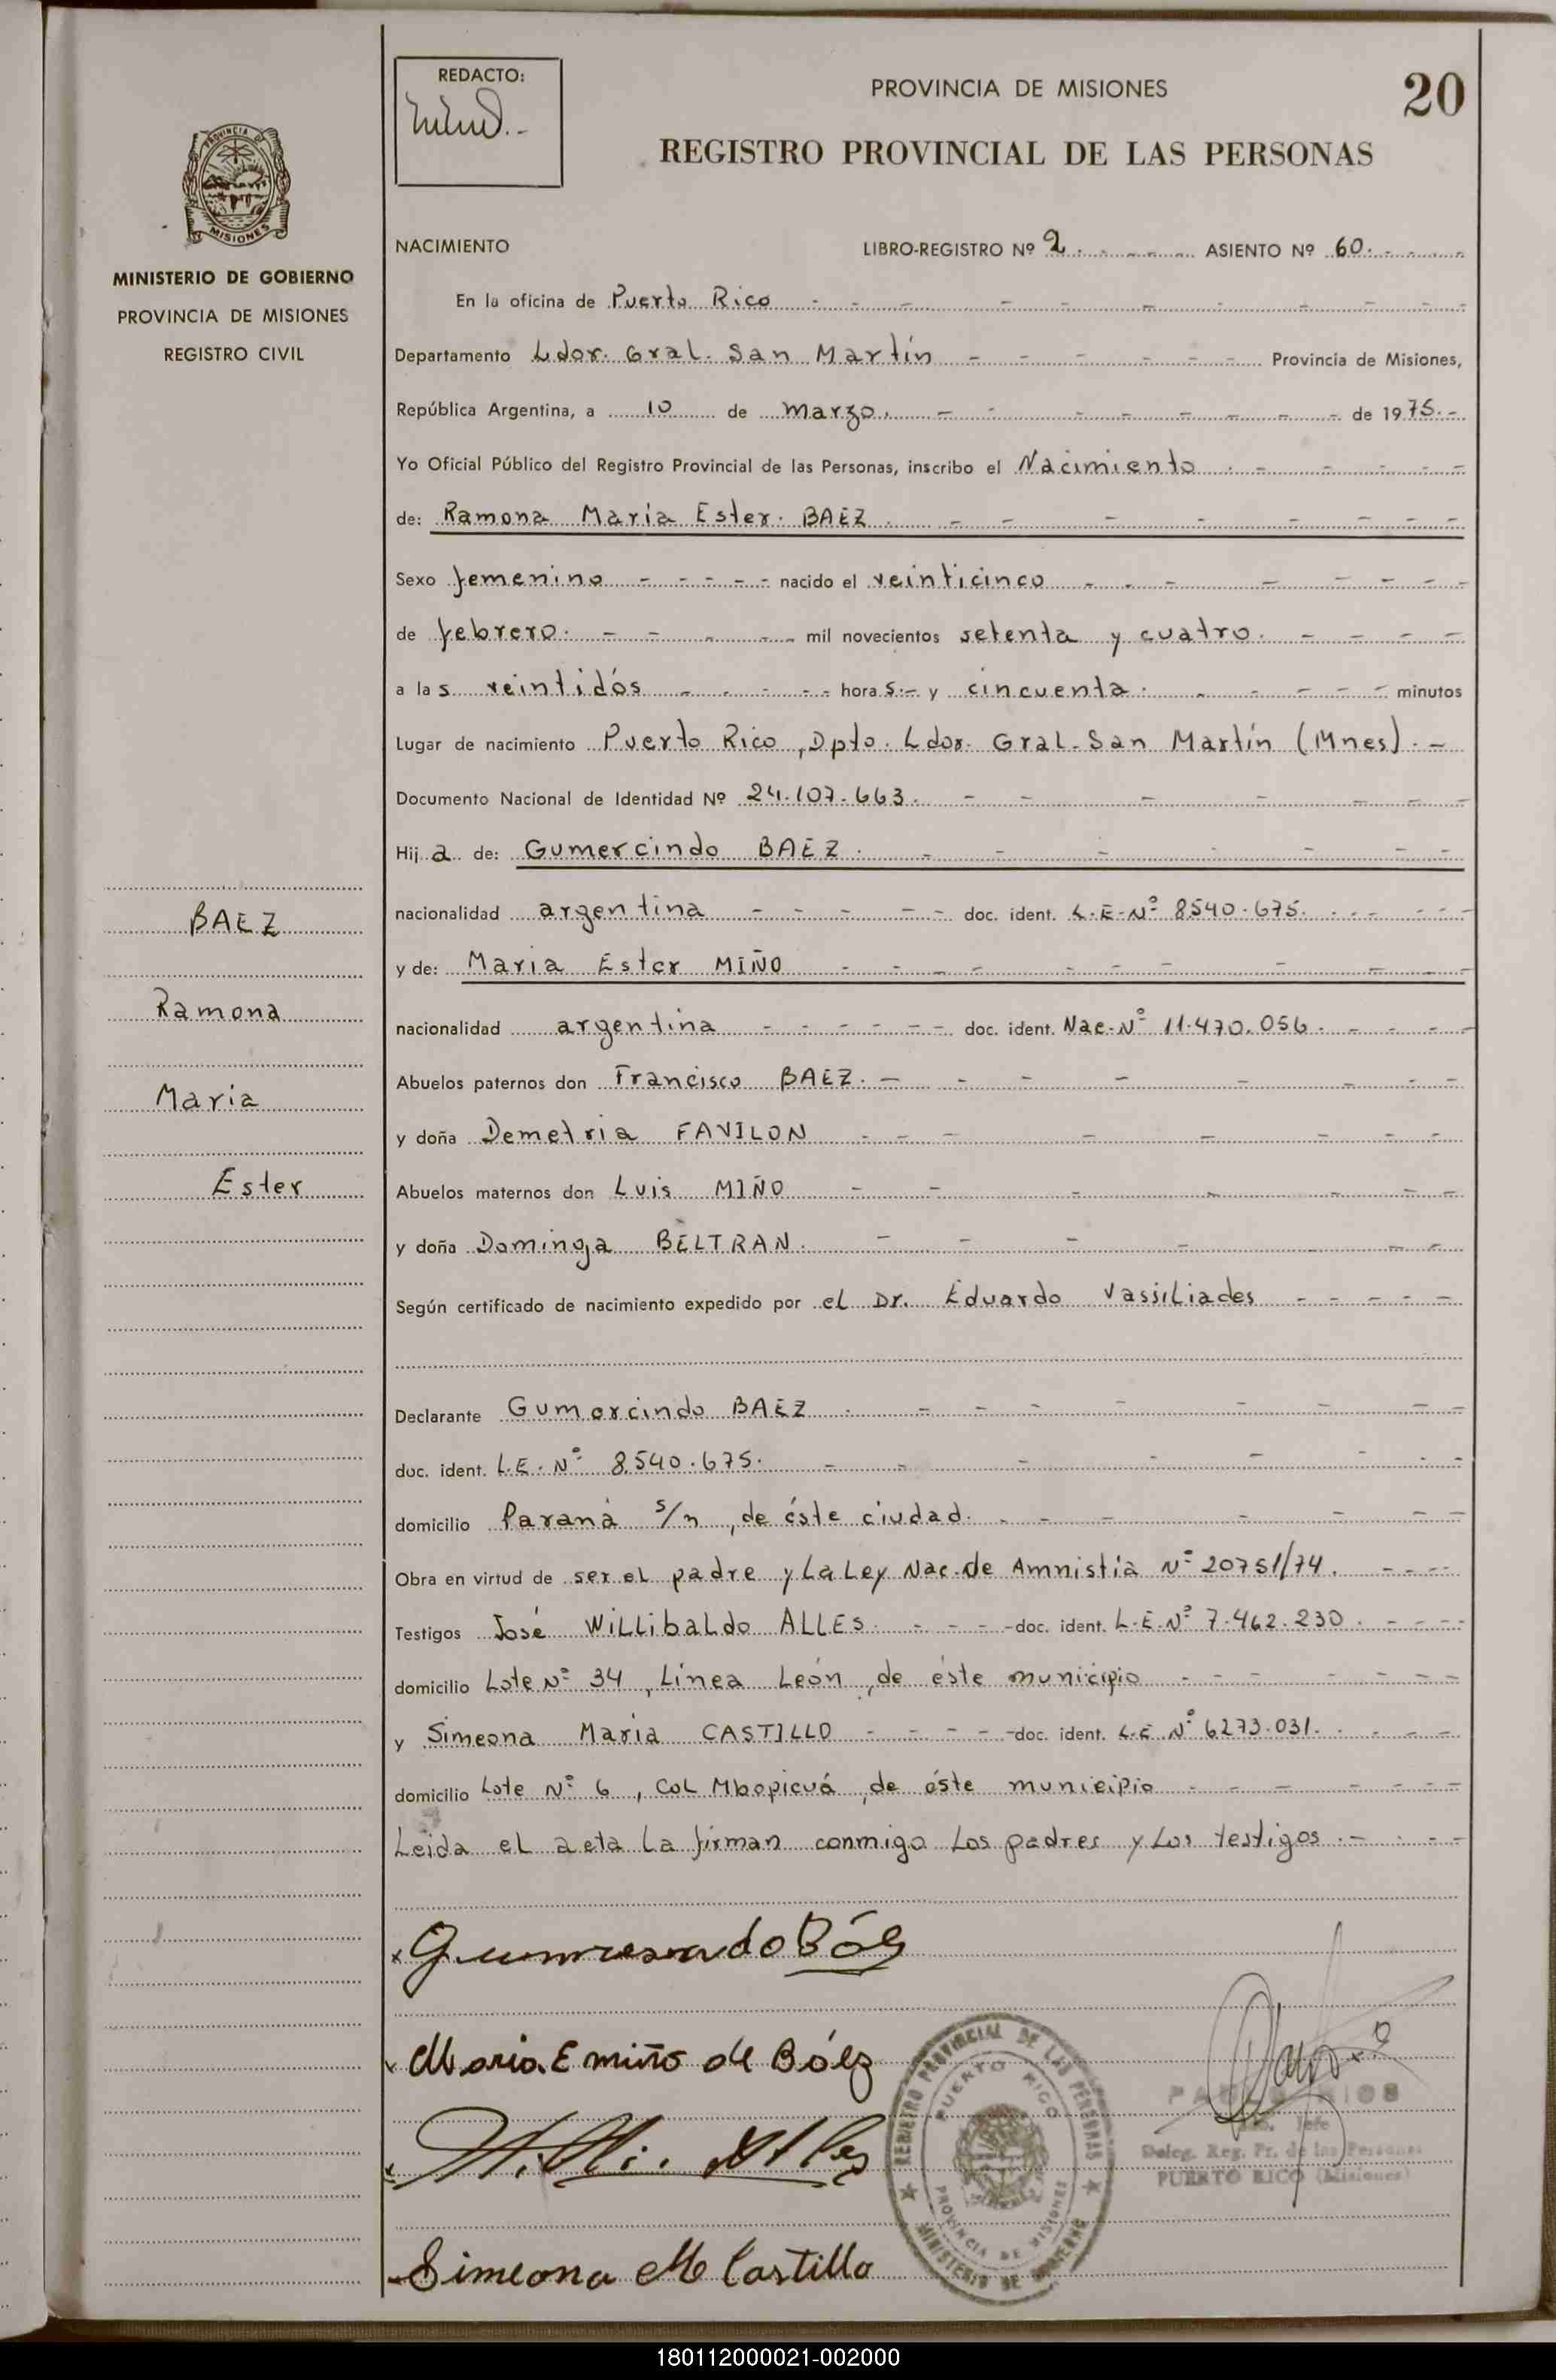 REDACTO:
PROVINCIA DE MISIONES
20
REGISTRO PROVINCIAL DE LAS PERSONAS
PROVINCIA DE
MISIONES
MINISTERIO DE GOBIERNO
PROVINCIA DE MISIONES
REGISTRO CIVIL
NACIMIENTO LIBRO-REGISTRO Nº 2. ASIENTO Nº 60.
En la oficina de Puerto Rico
Departamento Ldor. Gral. San Martín Provincia de Misiones,
República Argentina, a 10 de marzo. de 1975.-
Yo Oficial Público del Registro Provincial de las Personas, inscribo el Nacimiento
de: Ramona María Ester. BAEZ
Sexo femenino nacido el veinticinco
de febrero. mil novecientos setenta y cuatro.
a las veintidós horas.- y cincuenta. minutos
Lugar de nacimiento Puerto Rico, Dpto. Ldor. Gral. San Martín (Mnes).-
Documento Nacional de Identidad Nº 24.107.663.
Hija de: Gumercindo BAEZ.
nacionalidad argentina doc. ident. L.E.Nº 8540.675.
y de: Maria Ester MIÑO
nacionalidad argentina doc. ident. Nac.Nº 11.470.056.
Abuelos paternos don Francisco BAEZ.
y doña Demetria FAVILON
Abuelos maternos don Luis MIÑO
y doña Dominga BELTRAN.
Según certificado de nacimiento expedido por el Dr. Eduardo Vassiliades
Declarante Gumercindo BAEZ.
doc. ident. L.E. Nº 8.540.675.
domicilio Paraná s/n, de éste ciudad.
Obra en virtud de ser el padre y La Ley Nac. de Amnistía Nº 20751/74.
Testigos José Willibaldo ALLES. doc. ident. L.E.Nº 7.462.230.
domicilio Lote Nº 34, Línea León, de éste municipio
y Simeona María CASTILLO doc. ident. L.E.Nº 6273.031.
domicilio Lote Nº 6, Col Mbopicuá, de éste municipio
Leida el acta La firman conmigo Los padres y Los testigos.-
BAEZ
Ramona
Maria
Ester
Maria E miño de Báez
Simeona M Castillo
REGISTRO PROVINCIAL DE LAS PERSONAS
PUERTO RICO
PROVINCIA DE MISIONES
MINISTERIO DE GOBIERNO
Jefe
Deleg. Reg. Pr. de las Personas
PUERTO RICO (Misiones)
180112000021-002000